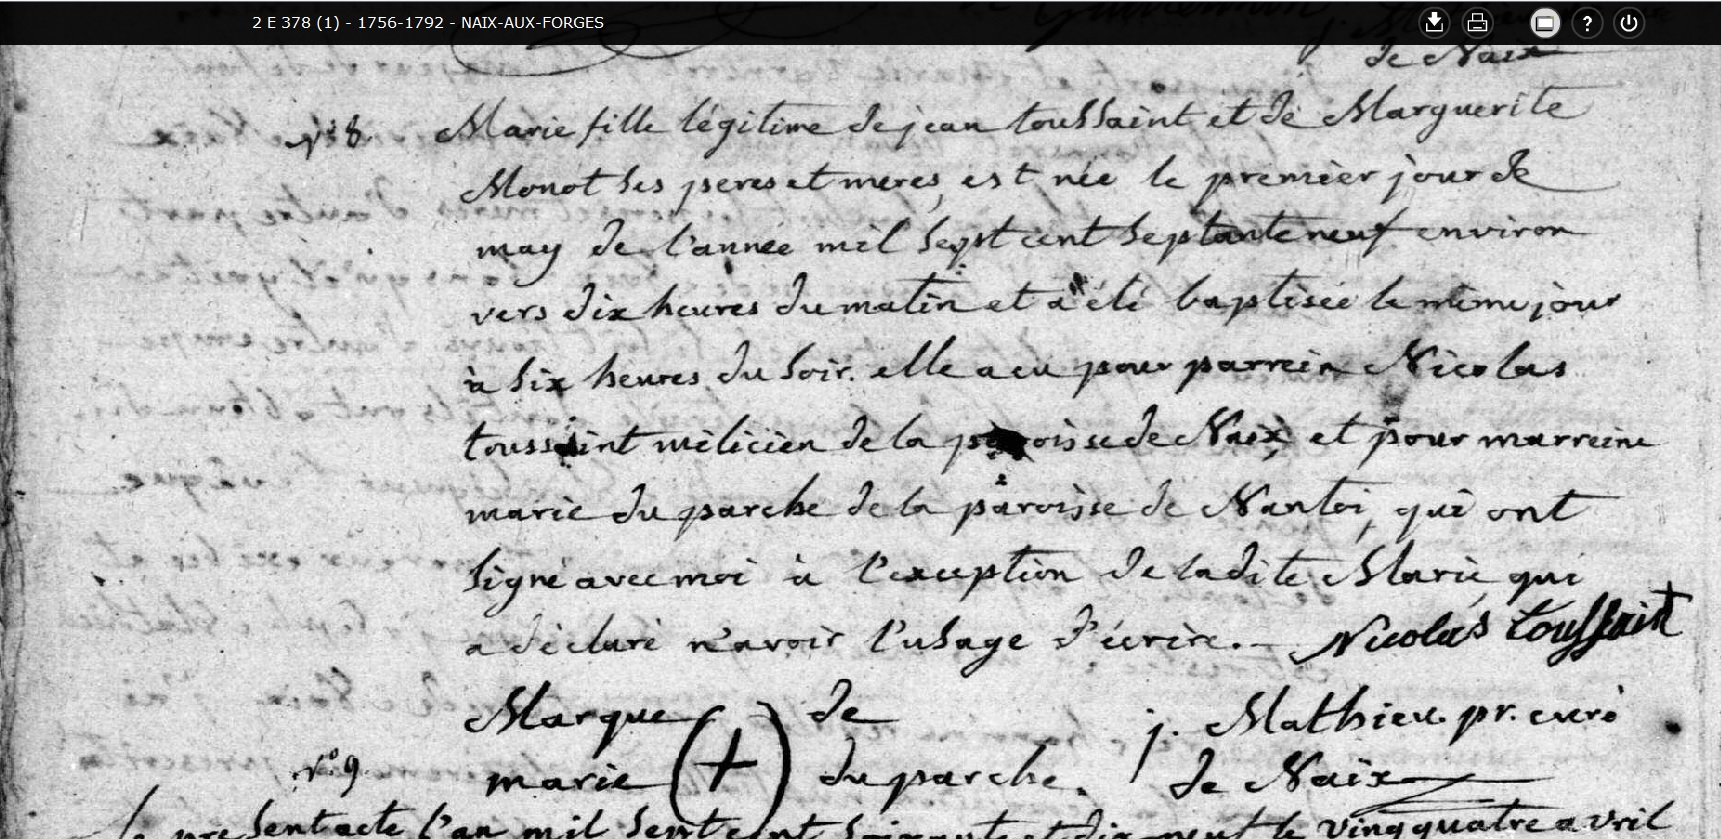 2 E 378 (1) - 1756-1792 - NAIX-AUX-FORGES
de Naix
n° 8. Marie fille légitime de jean toussaint et de Marguerite
Monot ses peres et meres, est née le premier jour de
may de l'année mil sept cent septante neuf environ
vers dix heures du matin et a été baptisée le même jour
à six heures du soir. elle a eu pour parrein Nicolas
toussaint milicien de la paroisse de Naix, et pour marreine
marie du parche de la paroisse de Nantoi, qui ont
signé avec moi à l'exception de ladite Marie, qui
a déclaré n'avoir l'usage d'écrire. Nicolas toussaint
Marque de j. Mathieu pr. curé
n° 9. marie (+) du parche. de Naix
le présent acte l'an mil sept cent soixante et dix neuf le vingquatre avril